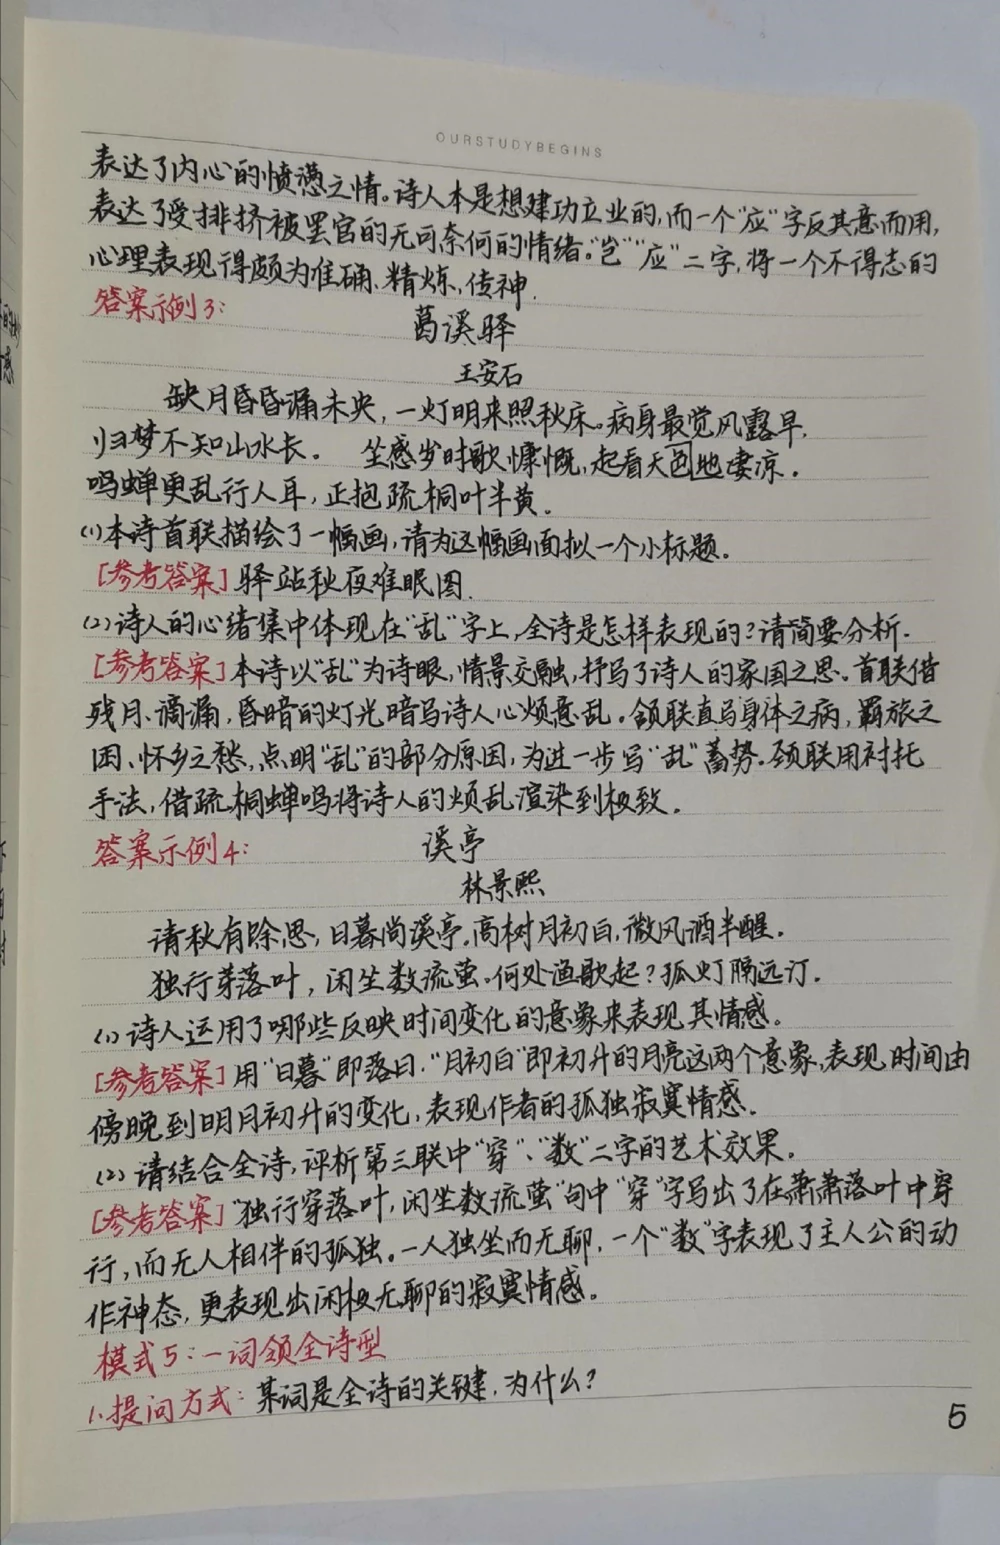 OURSTUDYBEGINS
表达了内心的愤懑之情。诗人本是想建功立业的,而一个“应”字反其意而用,
表达了受排挤被罢官的无可奈何的情绪。“岂”“应”二字,将一个不得志的
心理表现得颇为准确、精炼、传神.
答案示例3:
葛溪驿
王安石
缺月昏昏漏未央,一灯明来照秋床。病身最觉风露早,
归梦不知山水长。 坐感岁时歌慷慨,起看天色地凄凉.
鸣蝉更乱行人耳,正抱疏桐叶半黄。
(1)本诗首联描绘了一幅画,请为这幅画面拟一个小标题.
[参考答案]驿站秋夜难眠图.
(2)诗人的心绪集中体现在“乱”字上,全诗是怎样表现的?请简要分析.
[参考答案]本诗以“乱”为诗眼,情景交融,抒写了诗人的家国之思。首联借
残月、滴漏,昏暗的灯光暗写诗人心烦意乱。颔联直写身体之病,羁旅之
困、怀乡之愁,点明“乱”的部分原因,为进一步写“乱”蓄势.颈联用衬托
手法,借疏桐蝉鸣将诗人的烦乱渲染到极致.
答案示例4:
溪亭
林景熙
清秋有除思,日暮尚溪亭.高树月初白,微风酒半醒.
独行芽落叶,闲坐数流萤.何处渔歌起?孤灯隔远汀.
(1)诗人运用了哪些反映时间变化的意象来表现其情感。
[参考答案]用“日暮”即落日.“月初白”即初升的月亮这两个意象,表现时间由
傍晚到明月初升的变化,表现作者的孤独寂寞情感.
(2)请结合全诗,评析第三联中“穿”、“数”二字的艺术效果.
[参考答案]“独行穿落叶,闲坐数流萤”句中“穿”字写出了在萧萧落叶中穿
行,而无人相伴的孤独.一人独坐而无聊,一个“数”字表现了主人公的动
作神态,更表现出闲极无聊的寂寞情感。
模式5:一词领全诗型
1.提问方式:某词是全诗的关键,为什么?
5